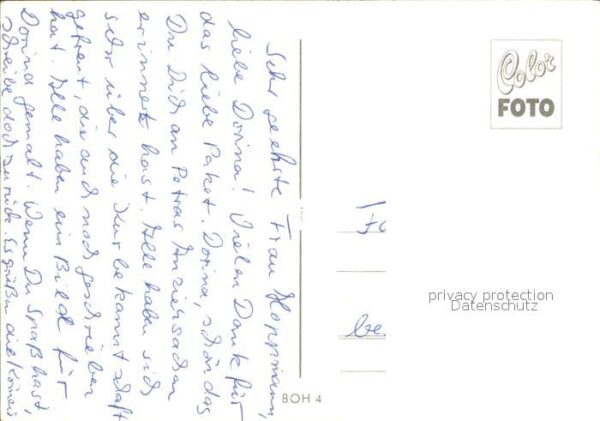 Sehr geehrte Frau Hoppmann,
liebe Dorina! Vielen Dank für
das liebe Paket. Dorina, schön das
Du Dich an Petras Anziehsachen
erinnert hast. Alle haben sich
sehr über die Kurbekanntschaft
gefreut, die auch noch geschrieben
hat. Alle haben ein Bild für
Dorina gemalt. Wenn Du Spaß hast,
schreibe doch zurück. Es grüßen die
Color
FOTO
be
privacy protection
Datenschutz
BOH 4